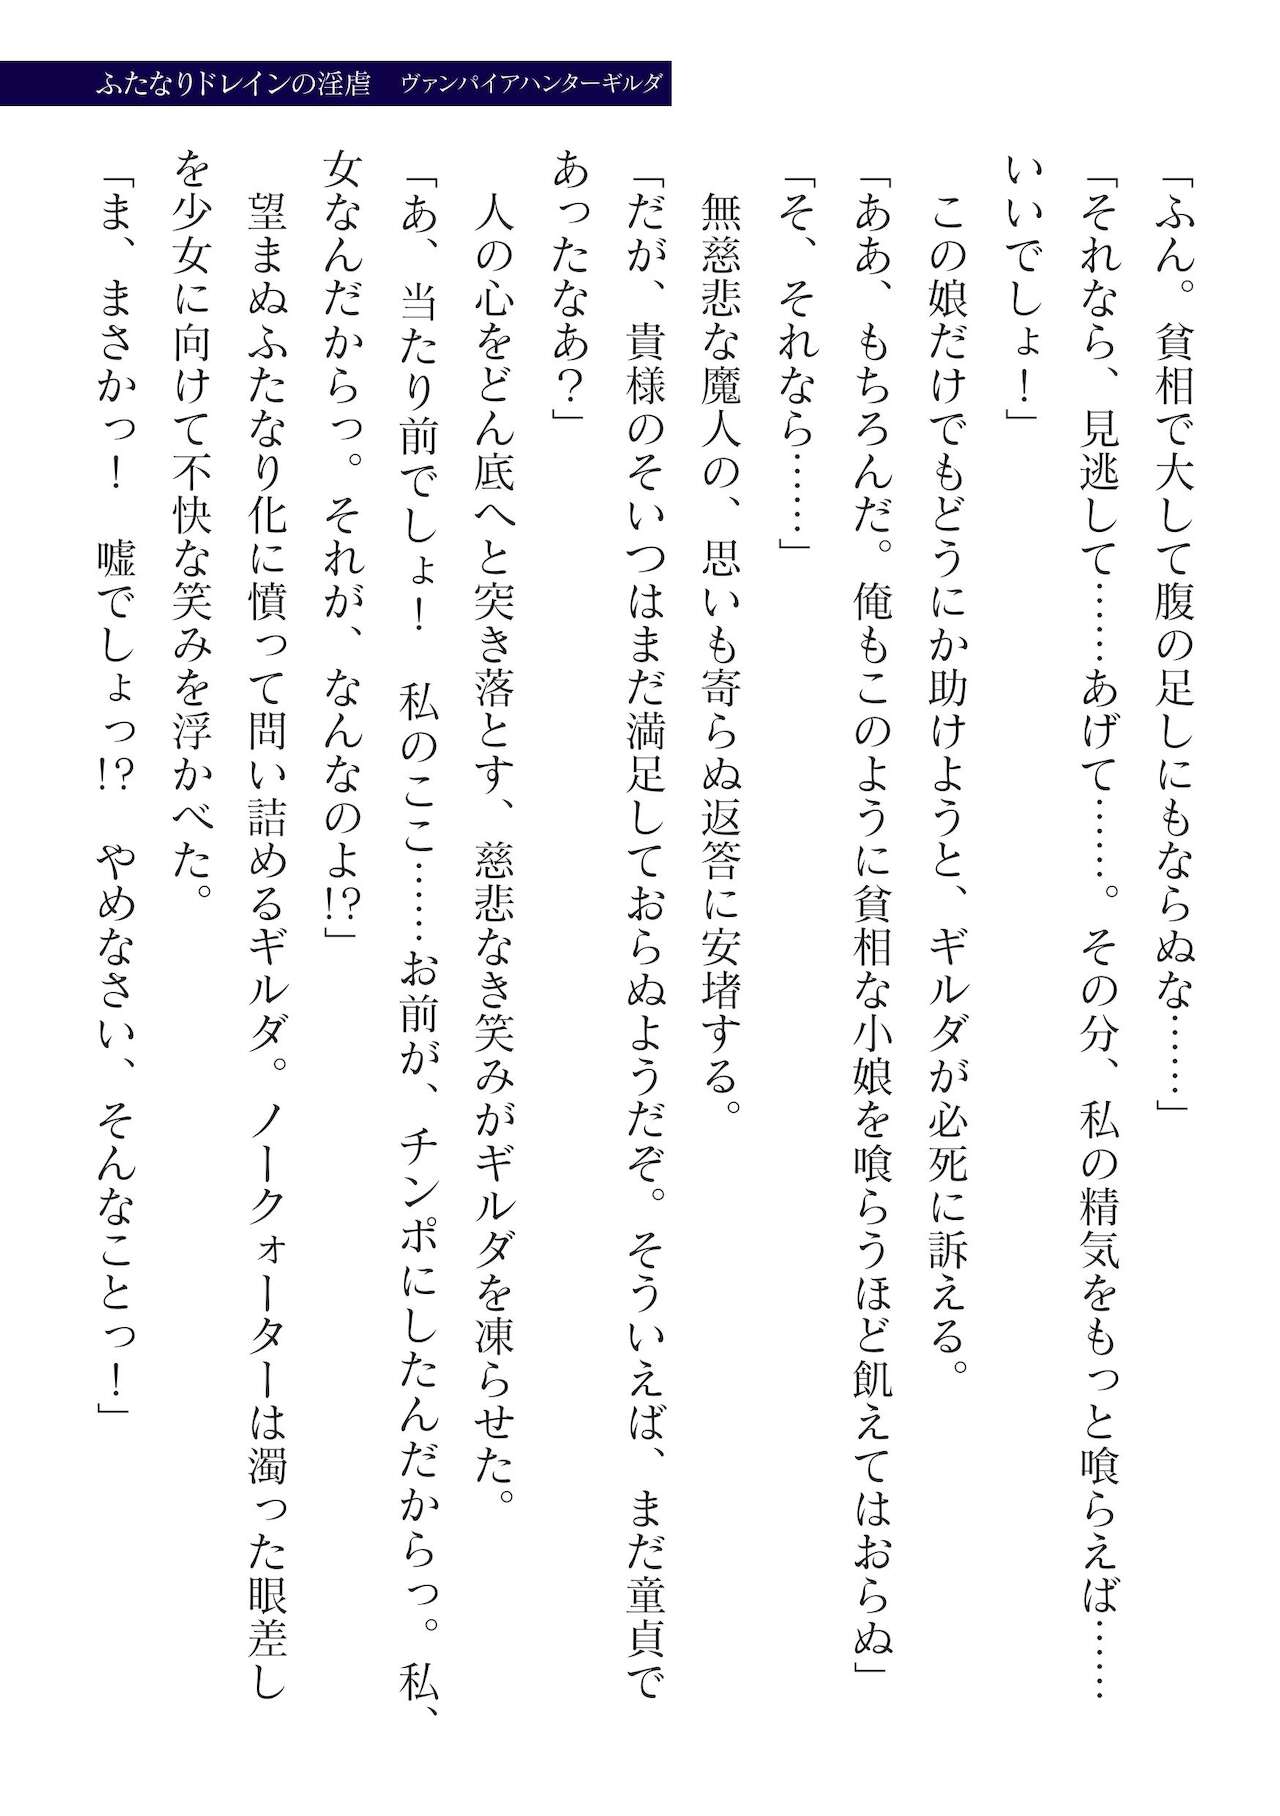 ふたなりドレインの淫虐 ヴァンパイアハンターギルダ
「ふん。貧相で大して腹の足しにもならぬな……」
「それなら、見逃して……あげて……。その分、私の精気をもっと喰らえば……
いいでしょ！」
　この娘だけでもどうにか助けようと、ギルダが必死に訴える。
「ああ、もちろんだ。俺もこのように貧相な小娘を喰らうほど飢えてはおらぬ」
「そ、それなら……」
　無慈悲な魔人の、思いも寄らぬ返答に安堵する。
「だが、貴様のそいつはまだ満足しておらぬようだぞ。そういえば、まだ童貞で
あったなあ？」
　人の心をどん底へと突き落とす、慈悲なき笑みがギルダを凍らせた。
「あ、当たり前でしょ！　私のここ……お前が、チンポにしたんだからっ。私、
女なんだからっ。それが、なんなのよ!?」
　望まぬふたなり化に憤って問い詰めるギルダ。ノークォーターは濁った眼差し
を少女に向けて不快な笑みを浮かべた。
「ま、まさかっ！　嘘でしょっ!?　やめなさい、そんなことっ！」